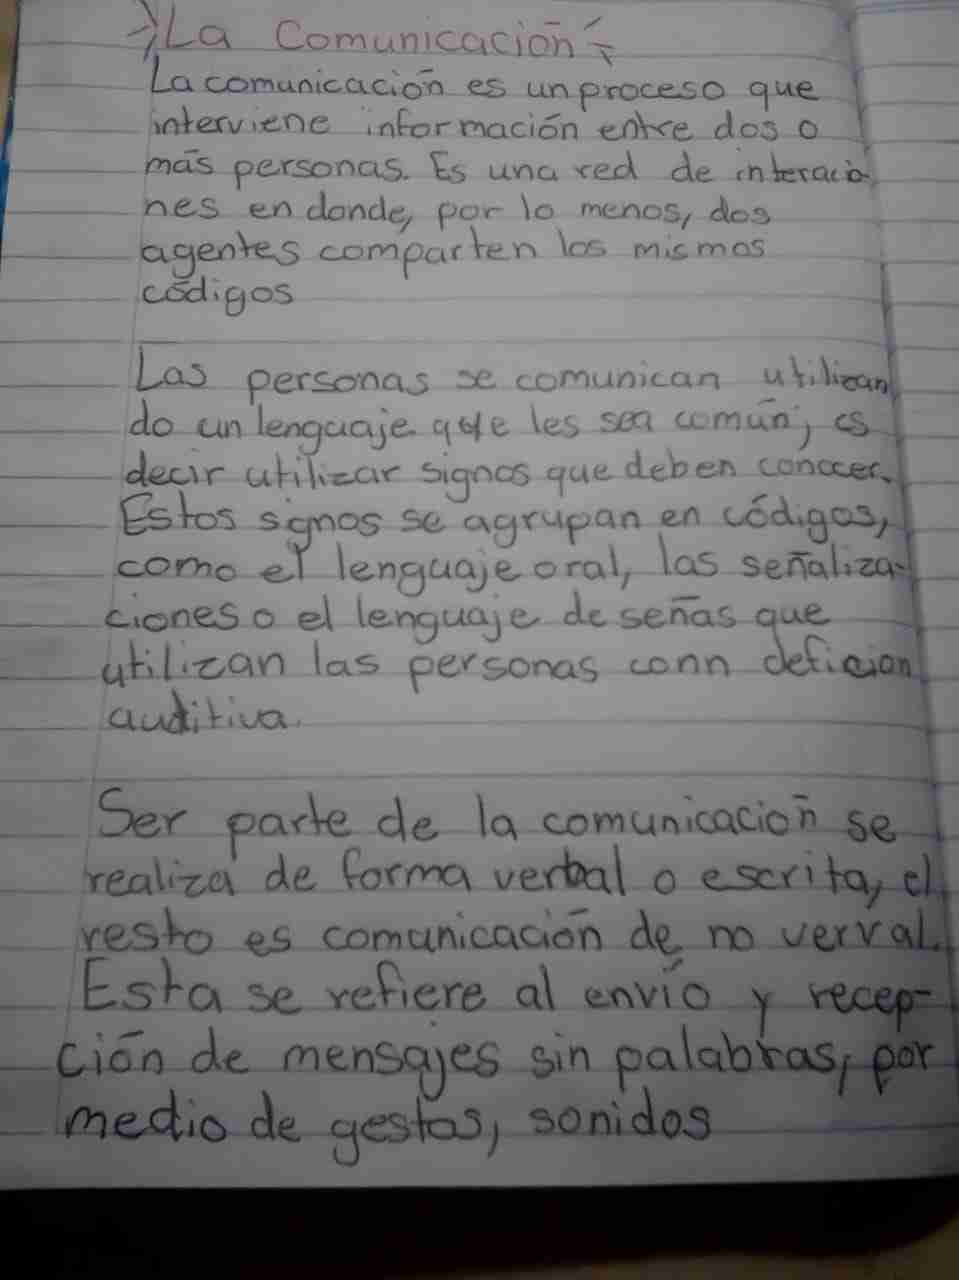 La Comunicación
La comunicación es un proceso que
interviene información entre dos o
más personas. Es una red de interacio-
nes en donde, por lo menos, dos
agentes comparten los mismos
códigos
Las personas se comunican utilizan
do un lenguaje que les sea común; es
decir utilizar signos que deben conocer.
Estos signos se agrupan en códigos,
como el lenguaje oral, las señaliza-
ciones o el lenguaje de señas que
utilizan las personas conn deficion
auditiva.
Ser parte de la comunicación se
realiza de forma verbal o escrita, el
resto es comunicación de no verval.
Esta se refiere al envío y recep-
ción de mensajes sin palabras, por
medio de gestos, sonidos